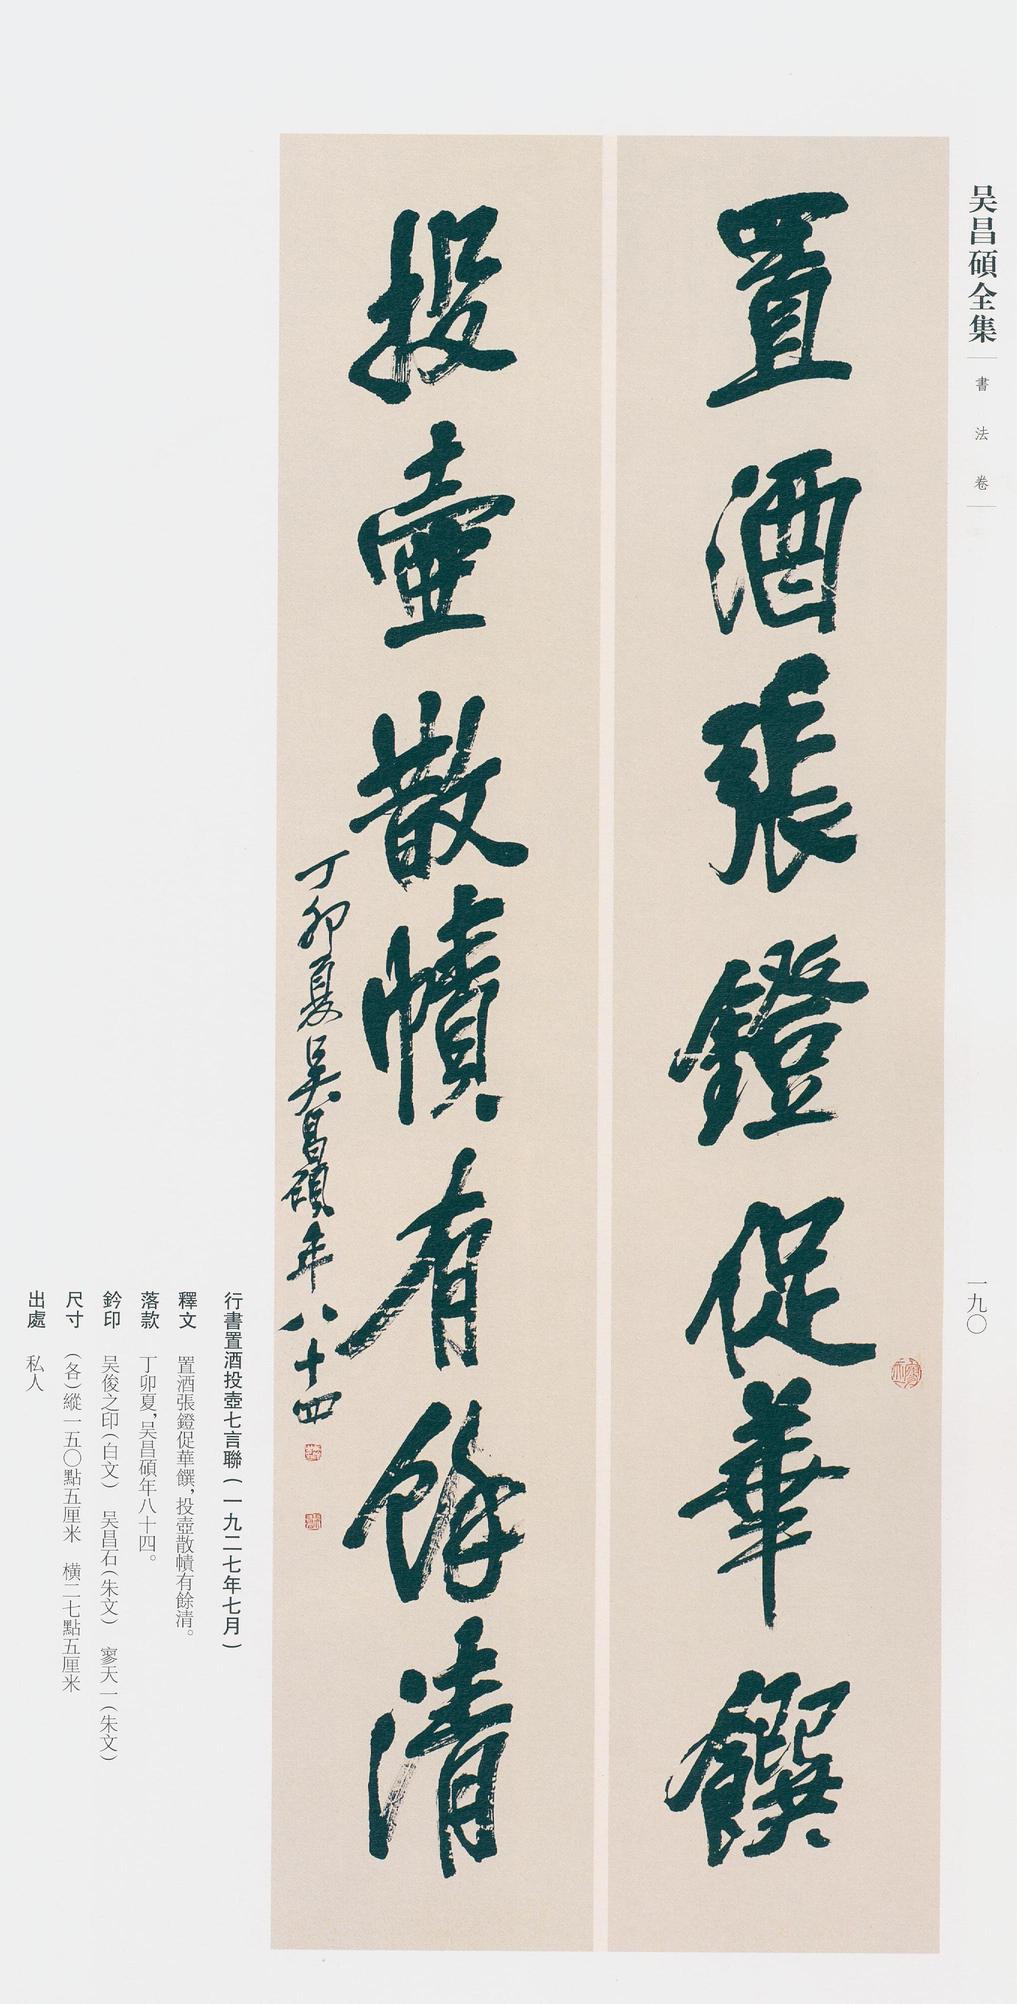 吴昌碩全集
書法卷
一九〇
置酒張鐙促華饌
投壺散幘有餘清
丁卯夏吴昌碩年八十四
行書置酒投壺七言聯(一九二七年七月)
釋文 置酒張鐙促華饌,投壺散幘有餘清。
落款 丁卯夏,吴昌碩年八十四。
鈐印 吴俊之印(白文) 吴昌石(朱文) 寥天一(朱文)
尺寸 (各)縱一五〇點五厘米 橫二七點五厘米
出處 私人